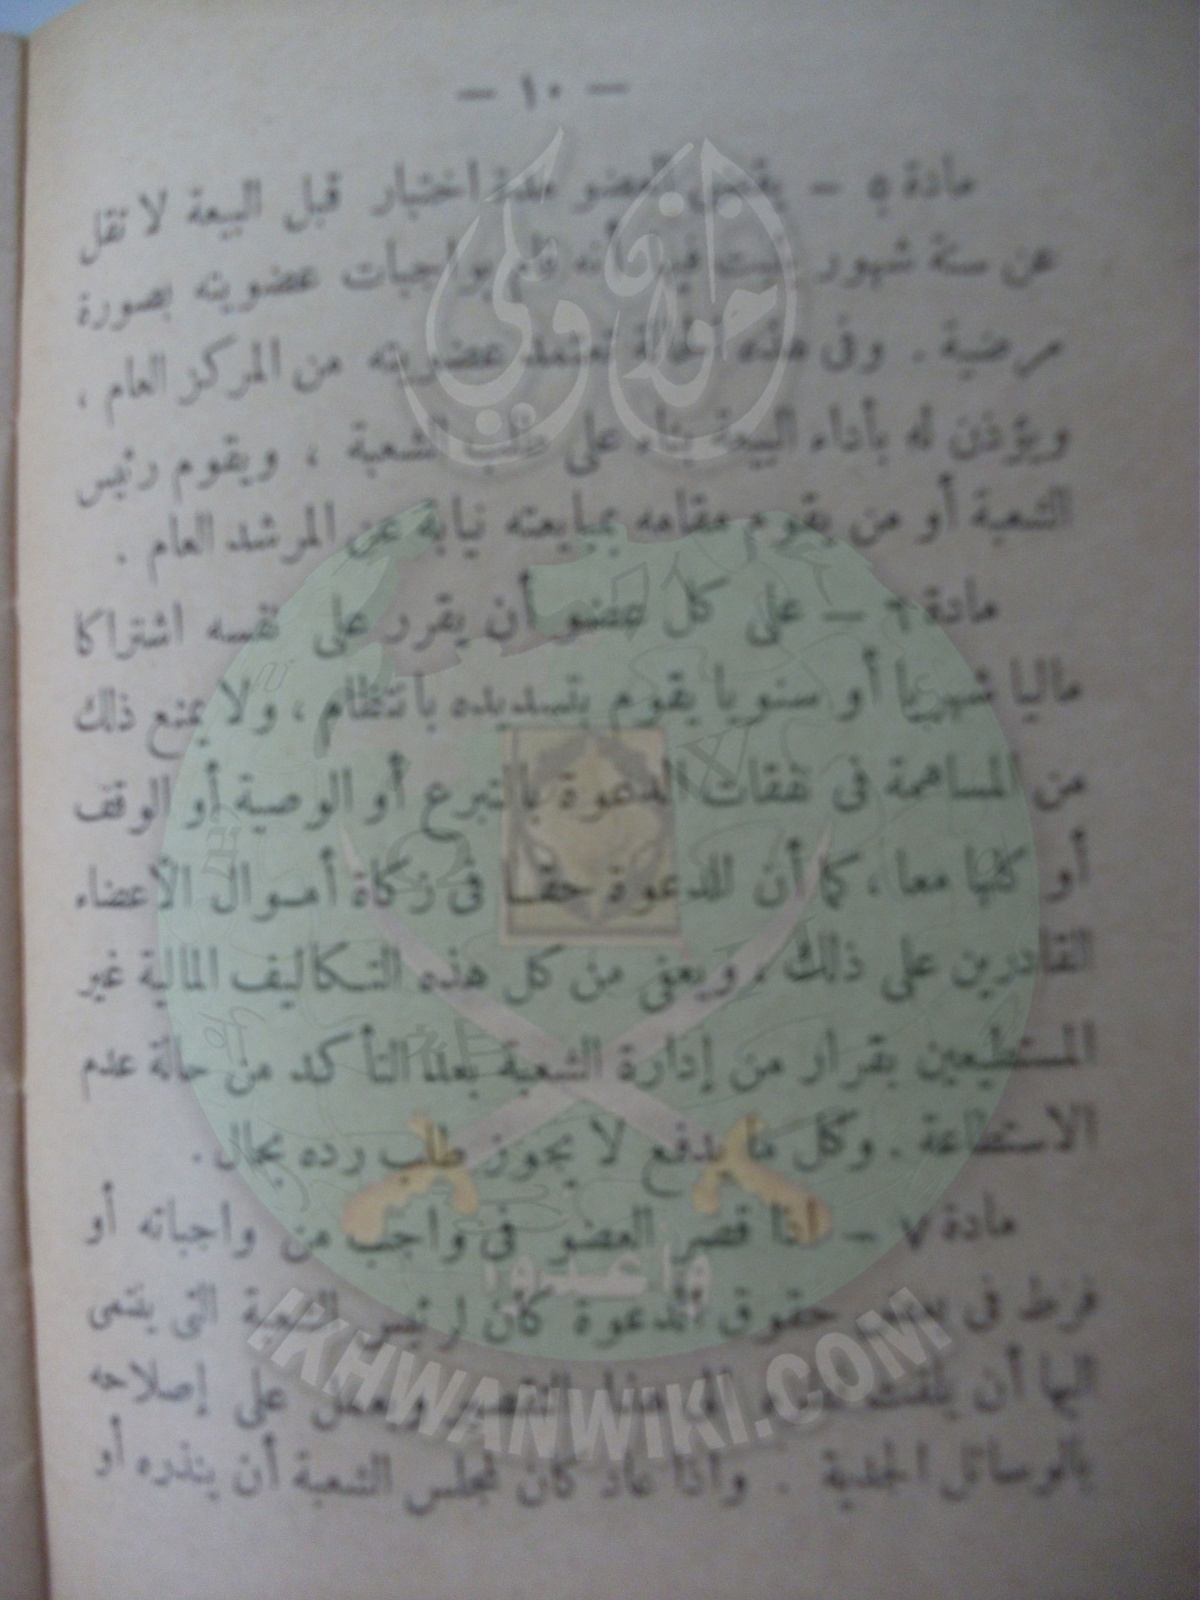 — ١٠ —
مادة ٥ — يقضى العضو مدة اختبار قبل البيعة لا تقل
عن ستة شهور يثبت فيها أنه قام بواجبات عضويته بصورة
مرضية . وفى هذه الحالة تعتمد عضويته من المركز العام ،
ويؤذن له بأداء البيعة بناء على طلب الشعبة ، ويقوم رئيس
الشعبة أو من يقوم مقامه بمبايعته نيابة عن المرشد العام .
مادة ٦ — على كل عضو أن يقرر على نفسه اشتراكا
ماليا شهريا أو سنويا يقوم بتسديده بانتظام ، ولا يمنع ذلك
من المساهمة فى نفقات الدعوة بالتبرع أو الوصية أو الوقف
أو كلها معا ، كما أن للدعوة حقا فى زكاة أموال الأعضاء
القادرين على ذلك . ويعفى من كل هذه التكاليف المالية غير
المستطيعين بقرار من إدارة الشعبة بعد التأكد من حالة عدم
الاستطاعة . وكل ما يدفع لا يجوز طلب رده بحال .
مادة ٧ — إذا قصر العضو فى واجب من واجباته أو
فرط فى بعض حقوق الدعوة كان لرئيس الشعبة التى ينتمى
اليها أن يلفت إلى هذا التقصير ويعمل على إصلاحه
بالوسائل المجدية . وإذا عاد كان لمجلس الشعبة أن ينذره أو
إخوان ويكي
وأعدوا
IKHWANWIKI.COM